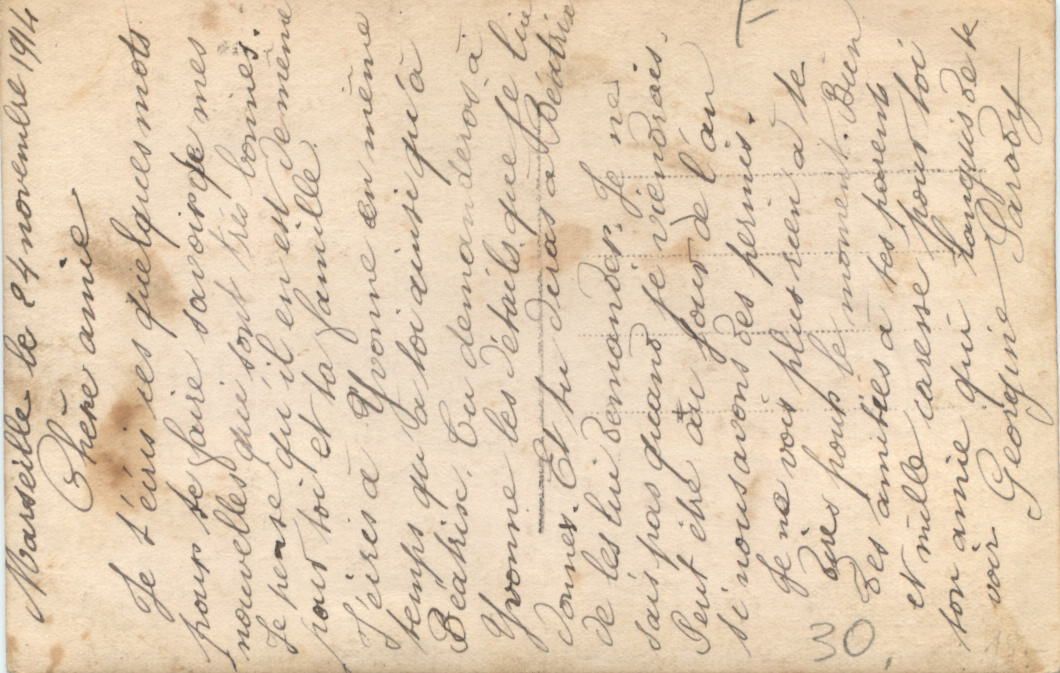 Marseille le 24 novembre 1914
Chère amie
Je t'écris ces quelques mots
pour te faire savoir de mes
nouvelles qui sont très bonnes.
Je pense qu'il en est de même
pour toi et ta famille.
J'écris à Yvonne en même
temps qu'à toi ainsi qu'à
Béatrix. Tu demanderos à
Yvonne les détails que je lui
donnes. Et tu diras à Béatrix
de les lui demander. Je ne
sais pas quand je viendrais.
Peut être au jour de l'an
si nous avons des permis.
Je ne vois plus rien a te
dire pour le moment. Bien
des amitiés à tes parents
et mille caresse pour toi
ton amie qui languis de te
voir Georgine
30